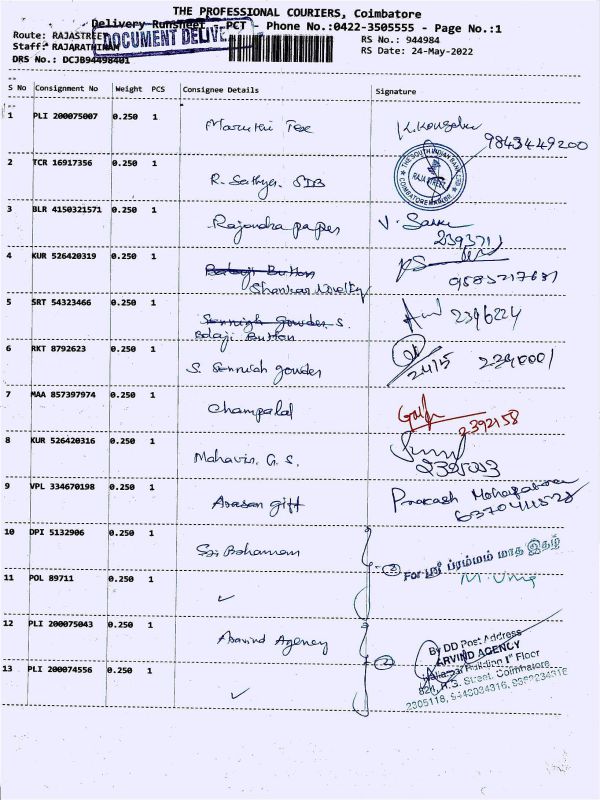 THE PROFESSIONAL COURIERS, Coimbatore
Delivery Runsheet - PCT - Phone No.:0422-3505555 - Page No.:1
Route: RAJASTREET
DOCUMENT DELIVE
RS No.: 944984
Staff: RAJARATHINAM
RS Date: 24-May-2022
DRS No.: DCJB94498401
S No Consignment No Weight PCS Consignee Details Signature
1 PLI 200075007 0.250 1 Maruthi Tex
9843449200
2 TCR 16917356 0.250 1 R. Sathya. SIB
THE SOUTH INDIAN BANK LTD
RAJA STREET
COIMBATORE
3 BLR 4150321571 0.250 1 Rajendra papes V.
2393711
4 KUR 526420319 0.250 1 Balaji Button
Shankar Novelty
5 SRT 54323466 0.250 1 Sennigh Gowder S.
Balaji Button
2396224
6 RKT 8792623 0.250 1 S. Sennioh gowder
24/5
7 MAA 857397974 0.250 1 Champalal
2392158
8 KUR 526420316 0.250 1 Mahavir. G. S.
9 VPL 334670198 0.250 1 Arasan gift
Prakash
10 DPI 5132906 0.250 1 Sri Bahamam
2
For ஸ்ரீ பிரம்மம் மாத இதழ்
M. Uma
11 POL 89711 0.250 1 ✓
12 PLI 200075043 0.250 1 Aravind Agency
2
By DD Post Address
ARVIND AGENCY
Building 1st Floor
82/1, R.S. Street, Coimbatore
13 PLI 200074556 0.250 1 ✓